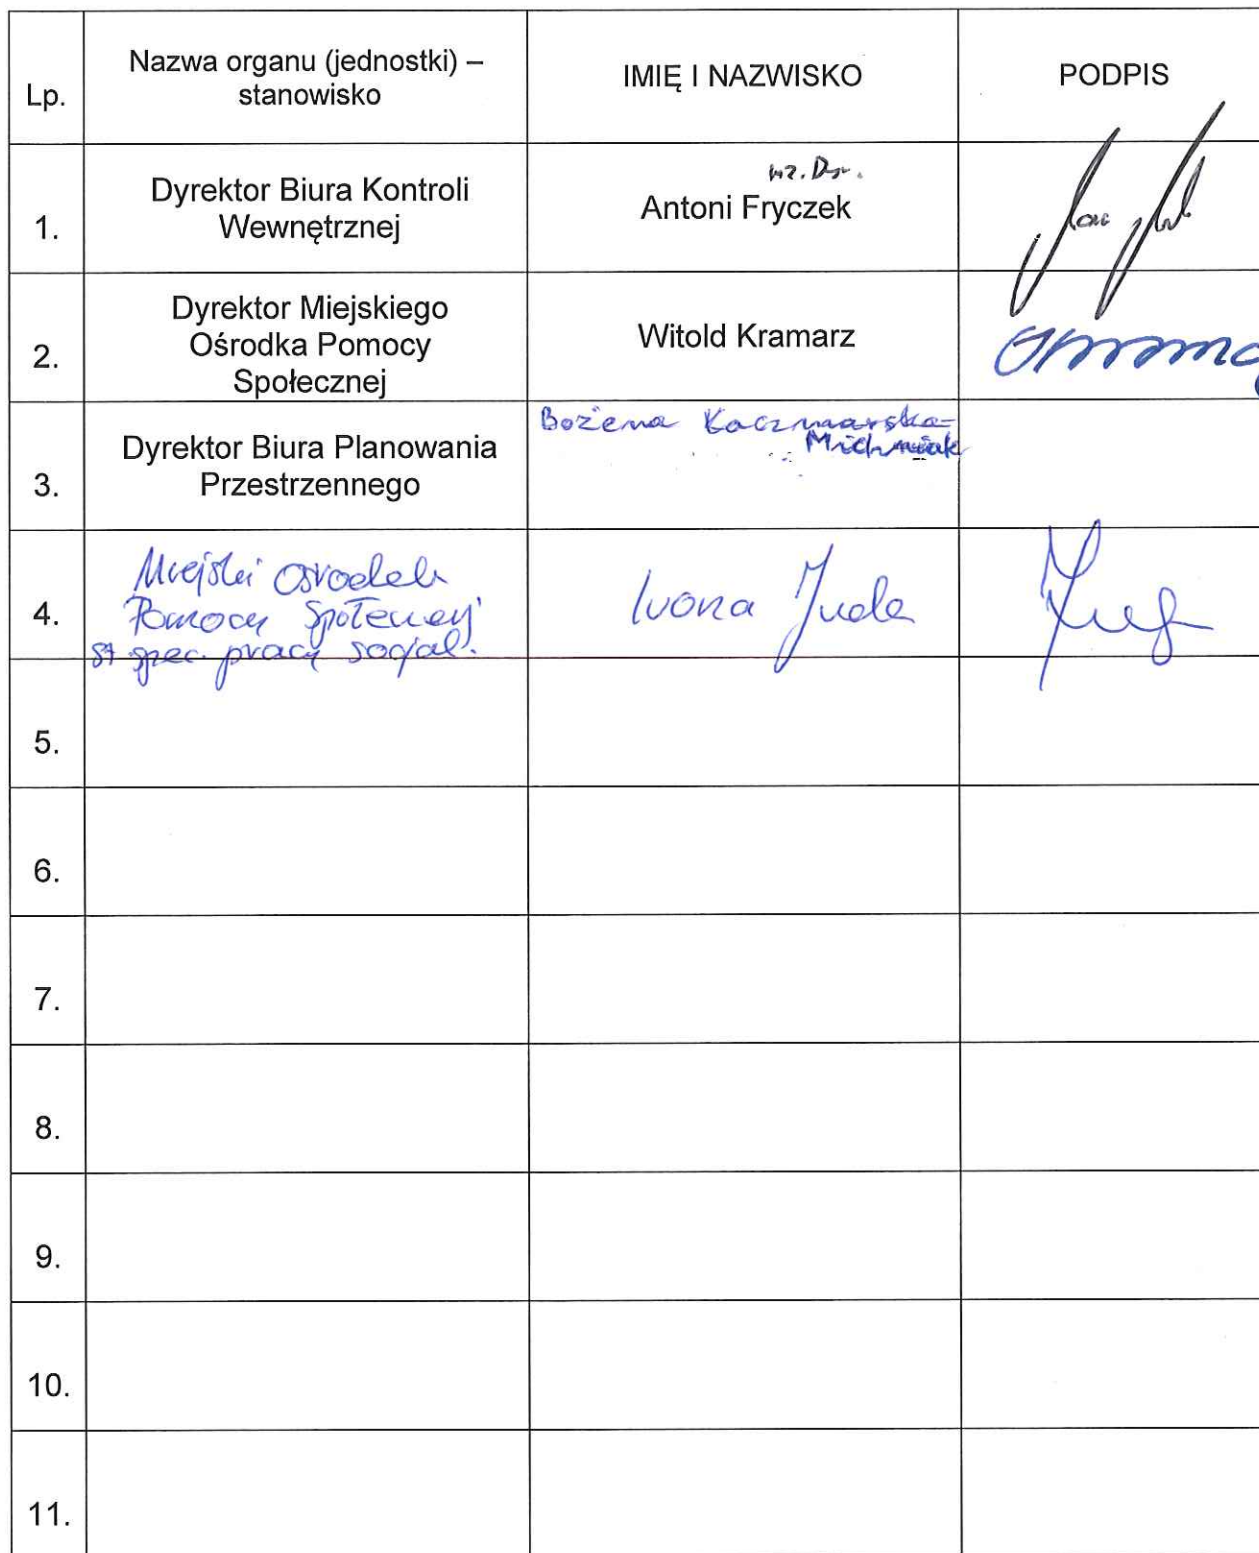 Lp.
Nazwa organu (jednostki) –
stanowisko
IMIĘ I NAZWISKO
PODPIS
1.
Dyrektor Biura Kontroli
Wewnętrznej
wz. Dyr.
Antoni Fryczek
2.
Dyrektor Miejskiego
Ośrodka Pomocy
Społecznej
Witold Kramarz
3.
Dyrektor Biura Planowania
Przestrzennego
Bożena Kaczmarska-
Michniak
4.
Miejski Ośrodek
Pomocy Społecznej
st. spec. pracy socjal.
Iwona Juda
5.
6.
7.
8.
9.
10.
11.